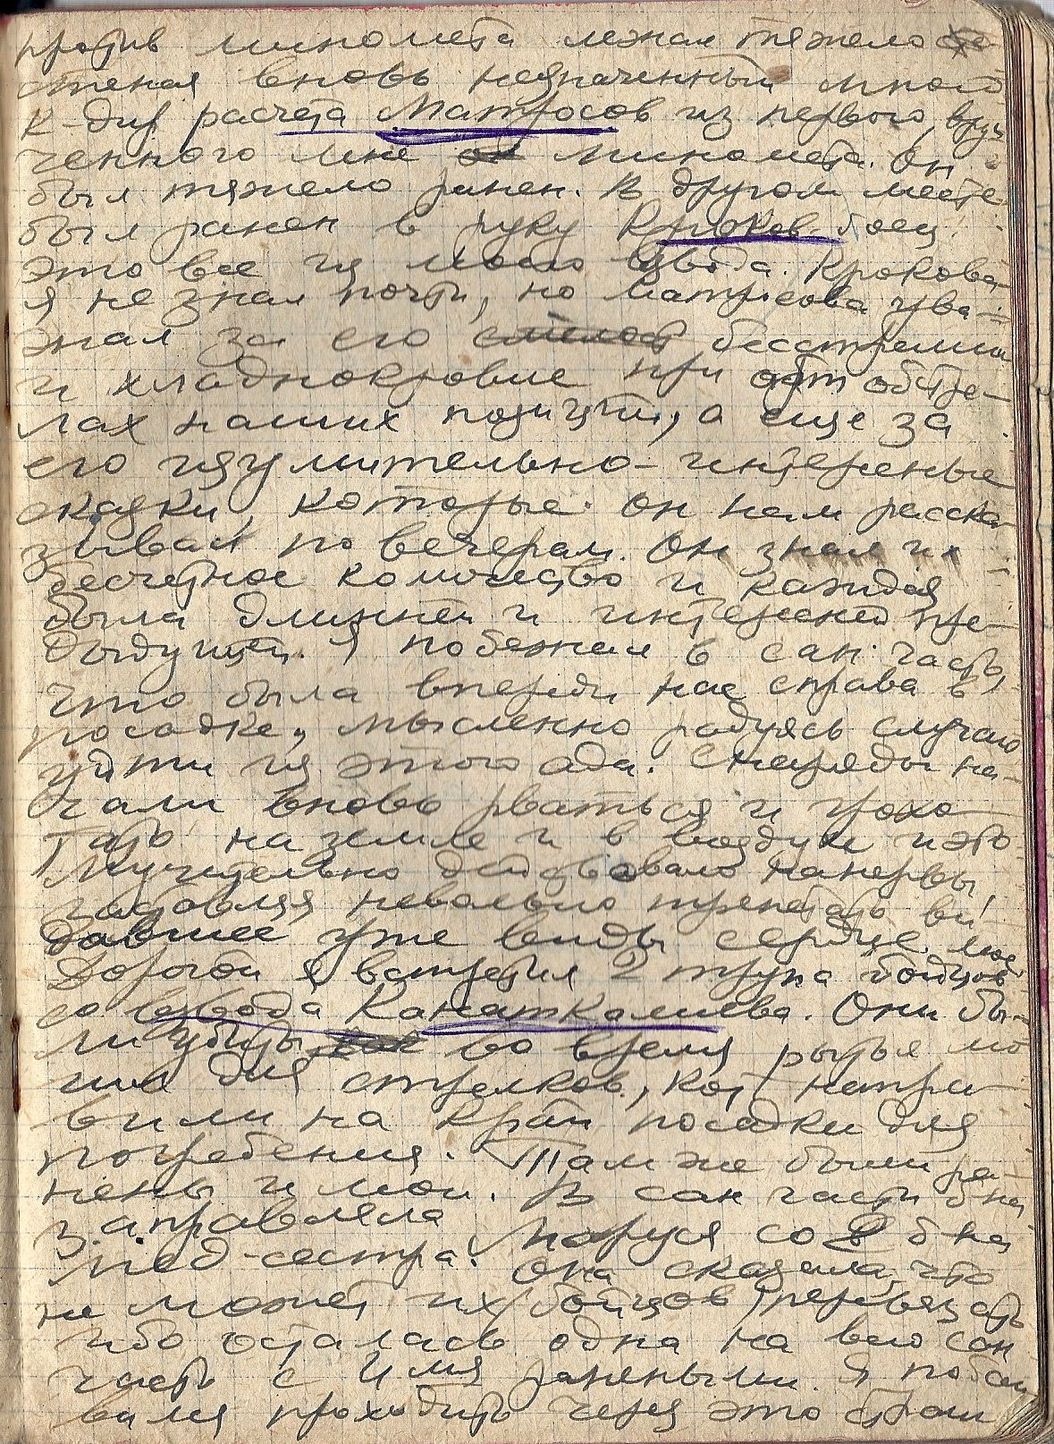 против миномета лежал тяжело
стеная вновь назначенный мной
к-дир расчета Матросов из первого, вру-
ченного мне миномета. Он
был тяжело ранен. В другом месте
был ранен в руку Крюков боец.
Это все из моего взвода. Крюкова
я не знал почти, но Матросова ува-
жал за его смелост бесстрашие
и хладнокровие при обстре-
лах наших позиций, а еще за
его изумительно-интересные
сказки, которые он нам расска-
зывал по вечерам. Он знал их
бесчетное количество и каждая
была длинней и интересней пре-
дыдущей. Я побежал в сан. часть,
что была впереди нас справа в
посадке, мысленно радуясь случаю
уйти из этого ада. Снаряды на-
чали вновь рваться и грохо-
тать на земле и в воздухе и это
мучительно действовало на нервы,
заставляя невольно трепетать ви-
давшее уже виды сердце мое.
Дорогой я встретил 2 трупа бойцов
со взвода Канаткалиева. Они бы-
ли убиты во время рытья мо-
гил для стрелков, кот. напра-
вили на край посадки для
погребения. Там же были ра-
нены и мои. В сан части б-на
заправляла Маруся со 2 б-на
мед-сестра. Она сказала, что
не может их /бойцов/ перевязать
ибо осталась одна на всю сан
часть с 4мя ранеными. Я побаи-
вался проходить через это страш